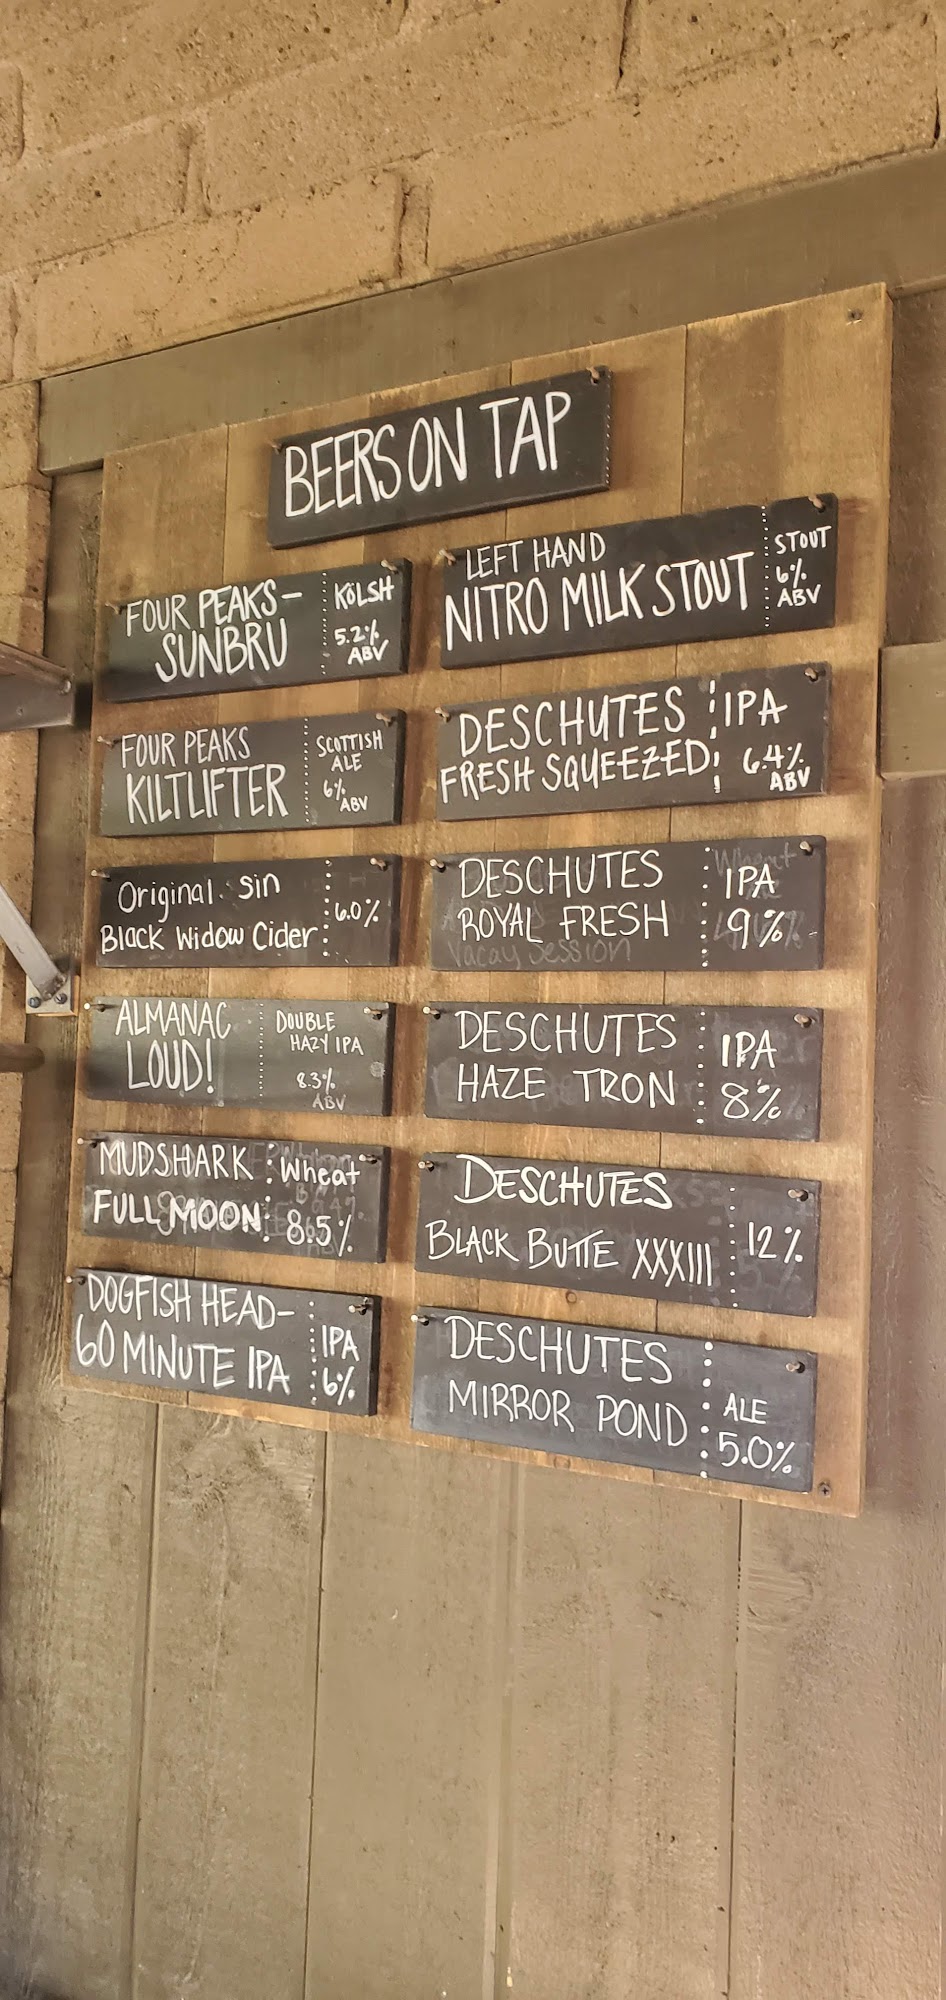 BEERS ON TAP
FOUR PEAKS-
SUNBRU
KÖLSH
5.2%
ABV
FOUR PEAKS
KILTLIFTER
SCOTTISH
ALE
6%
ABV
Original sin
Black Widow Cider
6.0%
ALMANAC
LOUD!
DOUBLE
HAZY IPA
8.3%
ABV
MUDSHARK
FULL MOON
Wheat
8.5%
DOGFISH HEAD-
60 MINUTE IPA
IPA
6%
LEFT HAND
NITRO MILK STOUT
STOUT
6%
ABV
DESCHUTES
FRESH SQUEEZED
IPA
6.4%
ABV
DESCHUTES
ROYAL FRESH
Vacay Session
IPA
9%
DESCHUTES
HAZE TRON
IPA
8%
DESCHUTES
BLACK BUTTE XXXIII
12%
DESCHUTES
MIRROR POND
ALE
5.0%